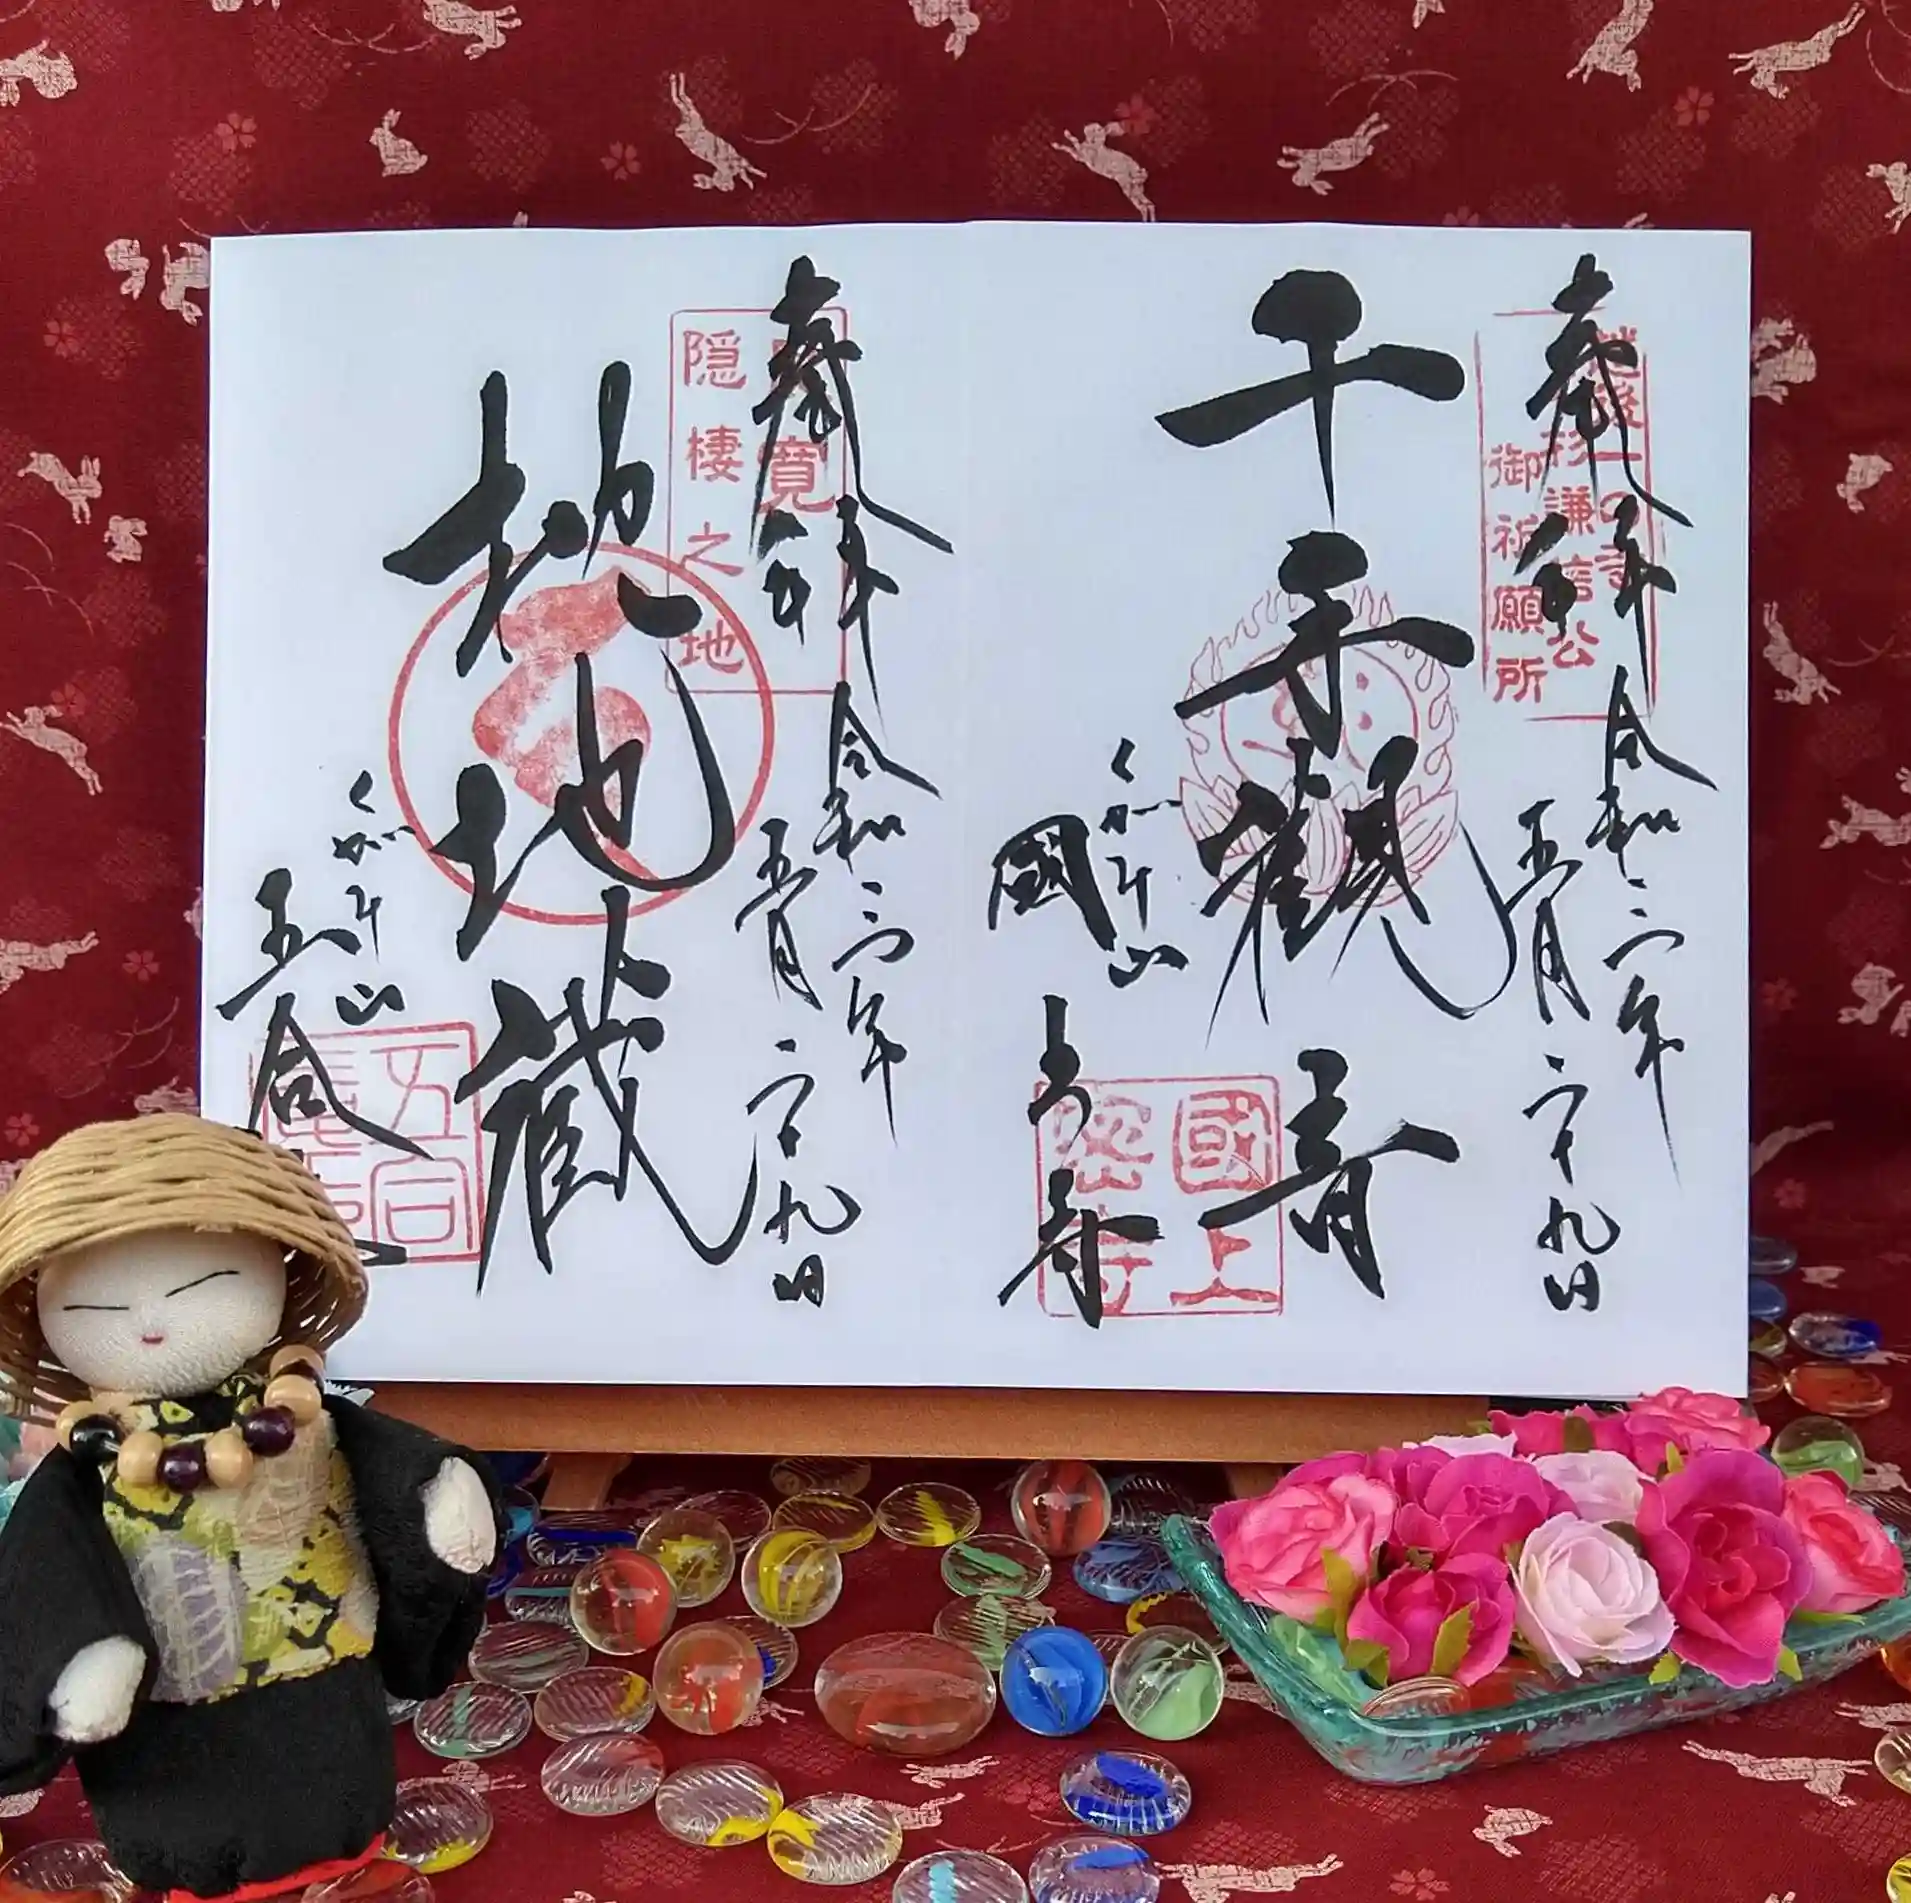 奉拝
令和二年
五月二十九日
越後一の寺
上杉謙信公
御祈願所
千手観音
くがみ山
國上寺
國上
寺
奉拝
令和二年
五月二十九日
良寛
隠棲之地
地蔵
くがみ山
五合
五合